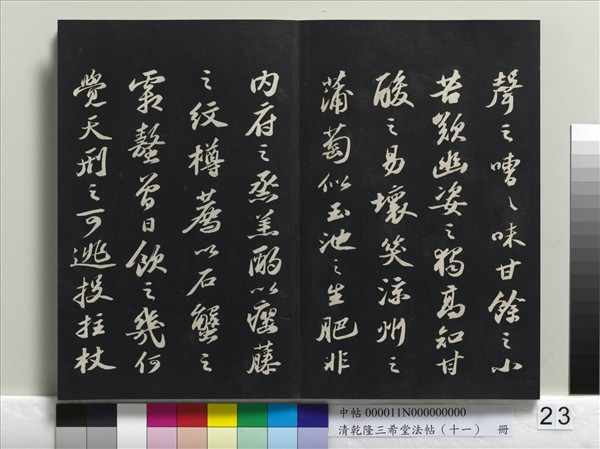 聲之嘈〻味甘餘之小
苦歎幽姿之獨高知甘
酸之易壞笑涼州之
蒲萄似玉池之生肥非
内府之烝羔酌以癭藤
之紋樽薦以石蟹之
霜螯曾日飲之幾何
覺天刑之可逃投拄杖
中帖 000011N000000000
清乾隆三希堂法帖（十一） 冊
23